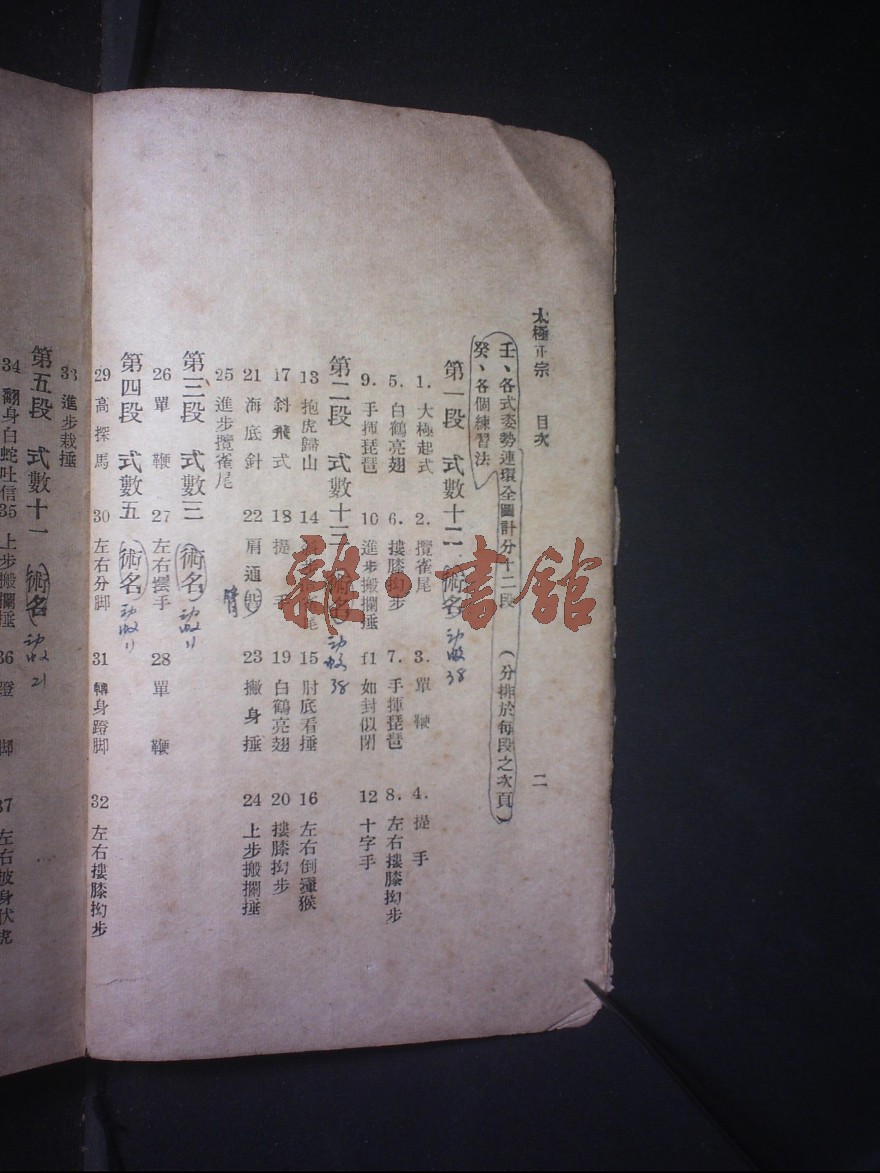 太極正宗 目次 二
壬、各式姿勢連環全圖計分十二段 (分排於每段之次頁)
癸、各個練習法
第一段 式數十二 術名 动数38
1. 大極起式 2. 攬雀尾 3. 單鞭 4. 提手
5. 白鶴亮翅 6. 摟膝拗步 7. 手揮琵琶 8. 左右摟膝拗步
9. 手揮琵琶 10 進步搬攔捶 11 如封似閉 12 十字手
第二段 式數十三 術名 动数38
13 抱虎歸山 14 尾 15 肘底看捶 16 左右倒攆猴
17 斜飛式 18 提手 19 白鶴亮翅 20 摟膝拗步
21 海底針 22 肩通 臂 23 撇身捶 24 上步搬攔捶
25 進步攬雀尾
第三段 式數三 術名 动数11
26 單鞭 27 左右擺手 28 單鞭
第四段 式數五 術名 动数11
29 高探馬 30 左右分脚 31 轉身蹬脚 32 左右摟膝拗步
33 進步栽捶
第五段 式數十一 術名 动数21
34 翻身白蛇吐信 35 上步搬攔捶 36 蹬脚 37 左右披身伏虎
雜·書館